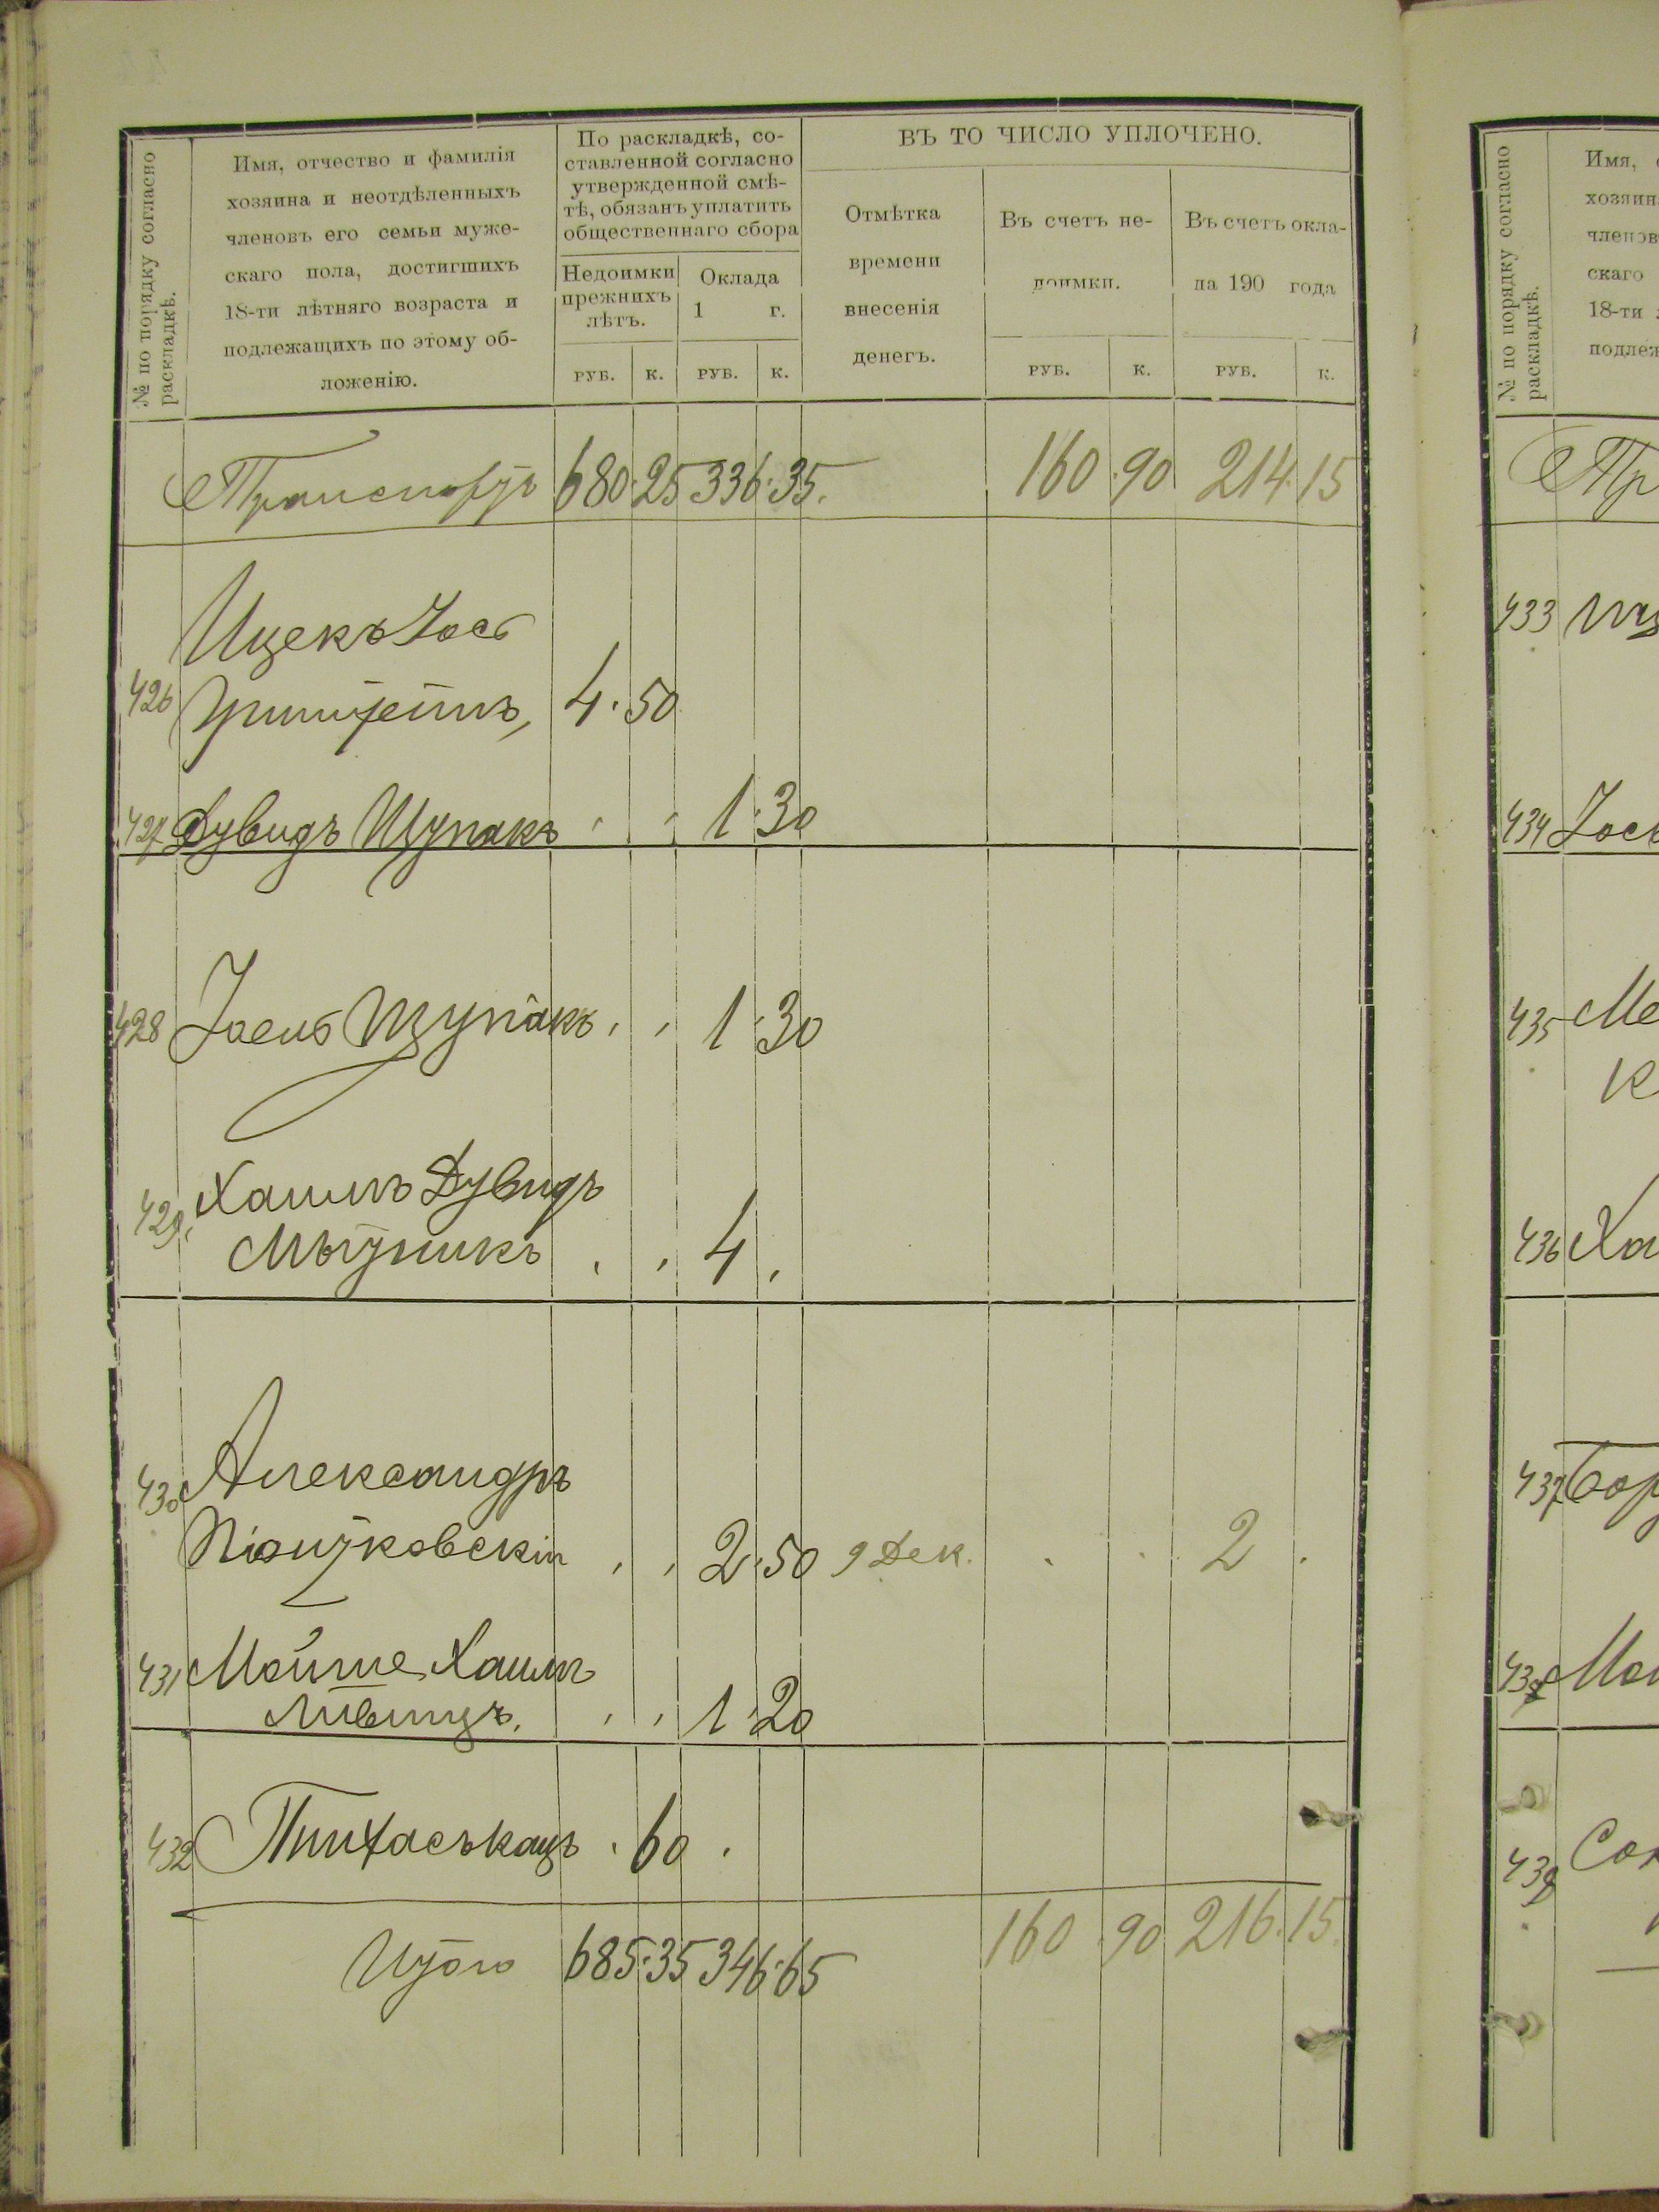 № по порядку согласно
раскладкѣ.
Имя, отчество и фамилія
хозяина и неотдѣленныхъ
членовъ его семьи муже-
скаго пола, достигшихъ
18-ти лѣтняго возраста и
подлежащихъ по этому об-
ложенію.
По раскладкѣ, со-
ставленной согласно
утвержденной смѣ-
тѣ, обязанъ уплатить
общественнаго сбора
Недоимки
прежнихъ
лѣтъ.
Оклада
1 г.
РУБ. К. РУБ. К.
ВЪ ТО ЧИСЛО УПЛОЧЕНО.
Отмѣтка
времени
внесенія
денегъ.
Въ счетъ не-
доимки.
Въ счетъ окла-
да 190 года
РУБ. К. РУБ. К.
Транспортъ 680.25 336.35. 160.90 214.15
Ицекъ Іось
426 Гринштейнъ, 4.50
427 Дувидъ Щупакъ 1.30
428 Іосиъ Щупакъ 1.30
429. Хаимъ Дувидъ
Мытникъ 4
430 Александръ
Піонтковскій 2.50 9 Дек. 2
431 Мойше Хаимъ
Лившицъ. 1.20
432 Пинхасъ Кацъ . 60 .
Итого 685.35 346.65 160 90 216.15.
№ по порядку согласно
раскладкѣ.
Имя,
хозяин
членов
скаго
18-ти
подлеж
Тр
433 Иц
434 Іось
435 Ме
К
436 Ха
437 Бор
438 Мой
439